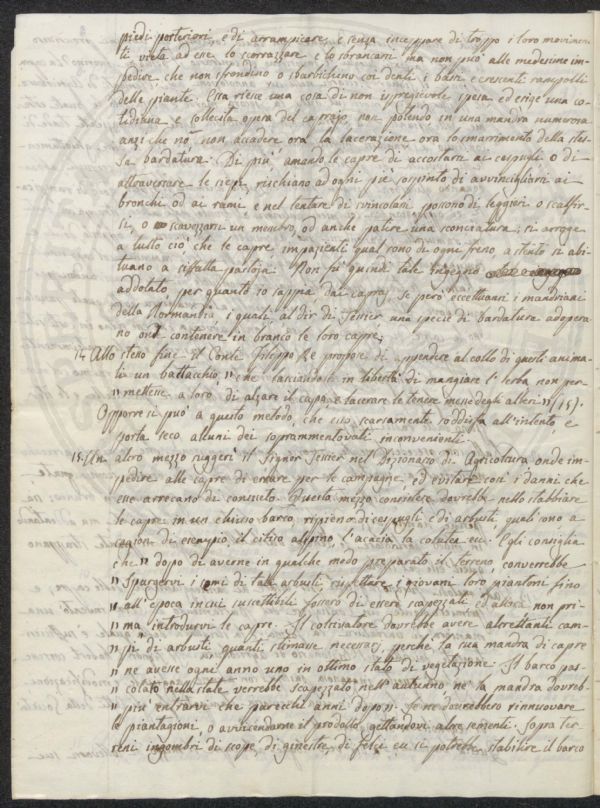 piedi posteriori, e di arrampicare, e senza inceppare di troppo i loro movimen-
ti vieta ad esse lo scorrazzare e lo sbrancarsi ma non può alle medesime im-
pedire che non sfrondino o sbarbichino coi denti i bassi e crescenti rampolli
delle piante. Essa riesce una cosa di non ispregievole spesa ed esige una co-
tidiana e sollecita opera del caprajo, non potendo in una mandra numerosa
anzi che nò non accadere ora la lacerazione ora lo smarrimento della stes-
sa bardatura. Di più amando le capre di accostarsi ai cespugli o di
attraversare le siepi rischiano ad ogni piè sospinto di avvincigliarsi ai
bronchi od ai rami e nel tentare di svincolarsi possono di leggieri o scalfir-
si, o scavezzarsi un membro, od anche patire una sconciatura: si arroge
a tutto ciò che le capre impazienti qual sono di ogni freno, a stento si abi-
tuano a siffatta pastoja. Non fu quindi tale ingegno
addotato per quanto io sappia dai capraj, se però eccettuansi i mandriani
della Normandia i quali al dir di Tessier una specie di bardatura adopera-
no onde contenere in branco le loro capre.
14. Allo stesso fine il Conte Filippo Re propose di appendere al collo di questi anima-
li un battacchio, "che lasciandoli in libertà di mangiare l'erba non per-
" mettesse a loro di alzare il capo e lacerare le tenere messe degli alberi" (15).
Opporre si può a questo metodo, che esso scarsamente soddisfa all'intento e
porta seco alcuni dei soprammentovati inconvenienti.
15. Un altro mezzo suggerì il Signor Tessier nel Dizionario di Agricoltura onde im-
pedire alle capre di errare per le campagne, ed evitare così i danni che
esse arrecano di consueto. Questo mezzo consistere dovrebbe nello stabbiare
le capre in un chiuso barco, ripieno di cespugli e di arbusti, quali sono a
cagion di esempio il citiso alpino, l'acacia la colutea ecc. Egli consiglia
che " dopo di averne in qualche modo preparato il terreno, converrebbe
" spargervi i semi di tali arbusti rispettare i giovani loro piantoni fino
" all'epoca in cui suscettibili fossero di essere scapezzati ed allora non pri-
" ma introdurvi le capre. Il coltivatore dovrebbe avere altrettanti cam-
" pi di arbusti quanti stimasse necessarj, perchè la sua mandra di capre
" ne avesse ogni anno uno in ottimo stato di vegetazione. Il barco pas-
" colato nella state verrebbe scapezzato nell'autunno nè la mandra dovreb-
" più entrarvi che parecchi anni doposi. Se ne dovrebbero rinnuovare
le piantagioni, o avvicendarne il prodotto, gettandovi altre sementi. Sopra ter-
reni ingombri di scope di ginestre, di felci ecc. si potrebbe stabilire il barco